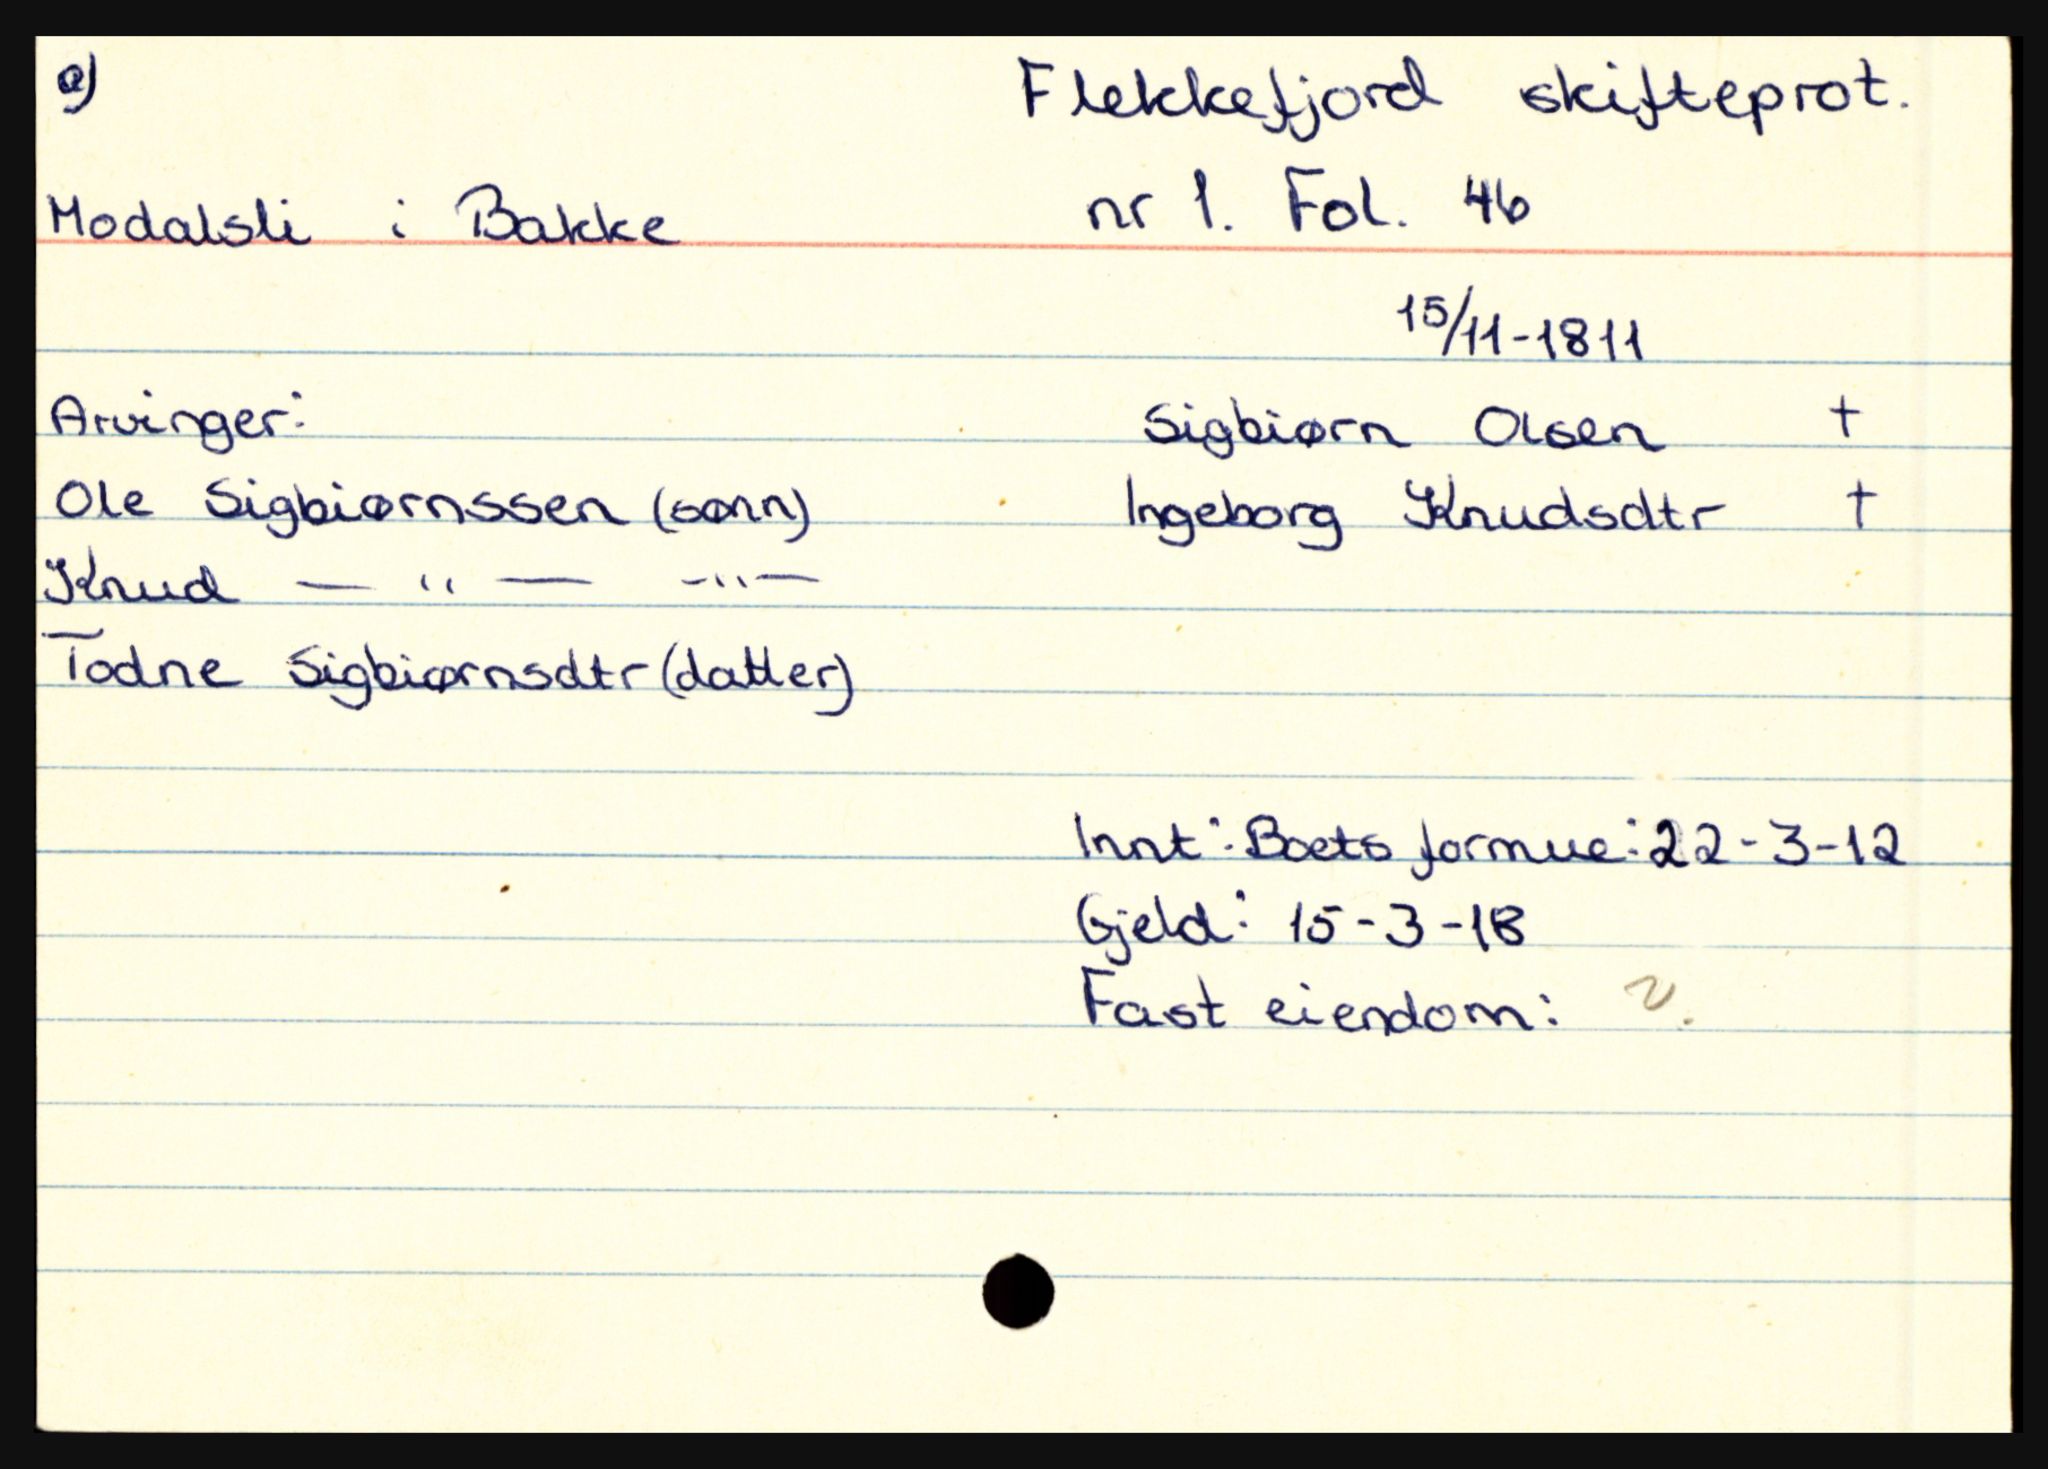 e)
Flekkefjord skifteprot.
Modalsli i Bakke
nr 1. Fol. 46
15/11-1811
Arvinger:
Sigbiørn Olsen †
Ole Sigbiørnssen (sønn)
Ingeborg Knudsdtr †
Knud — " — -"—
Todne Sigbiørnsdtr (datter)
Innt: Boets formue: 22-3-12
Gjeld: 15-3-18
Fast eiendom: